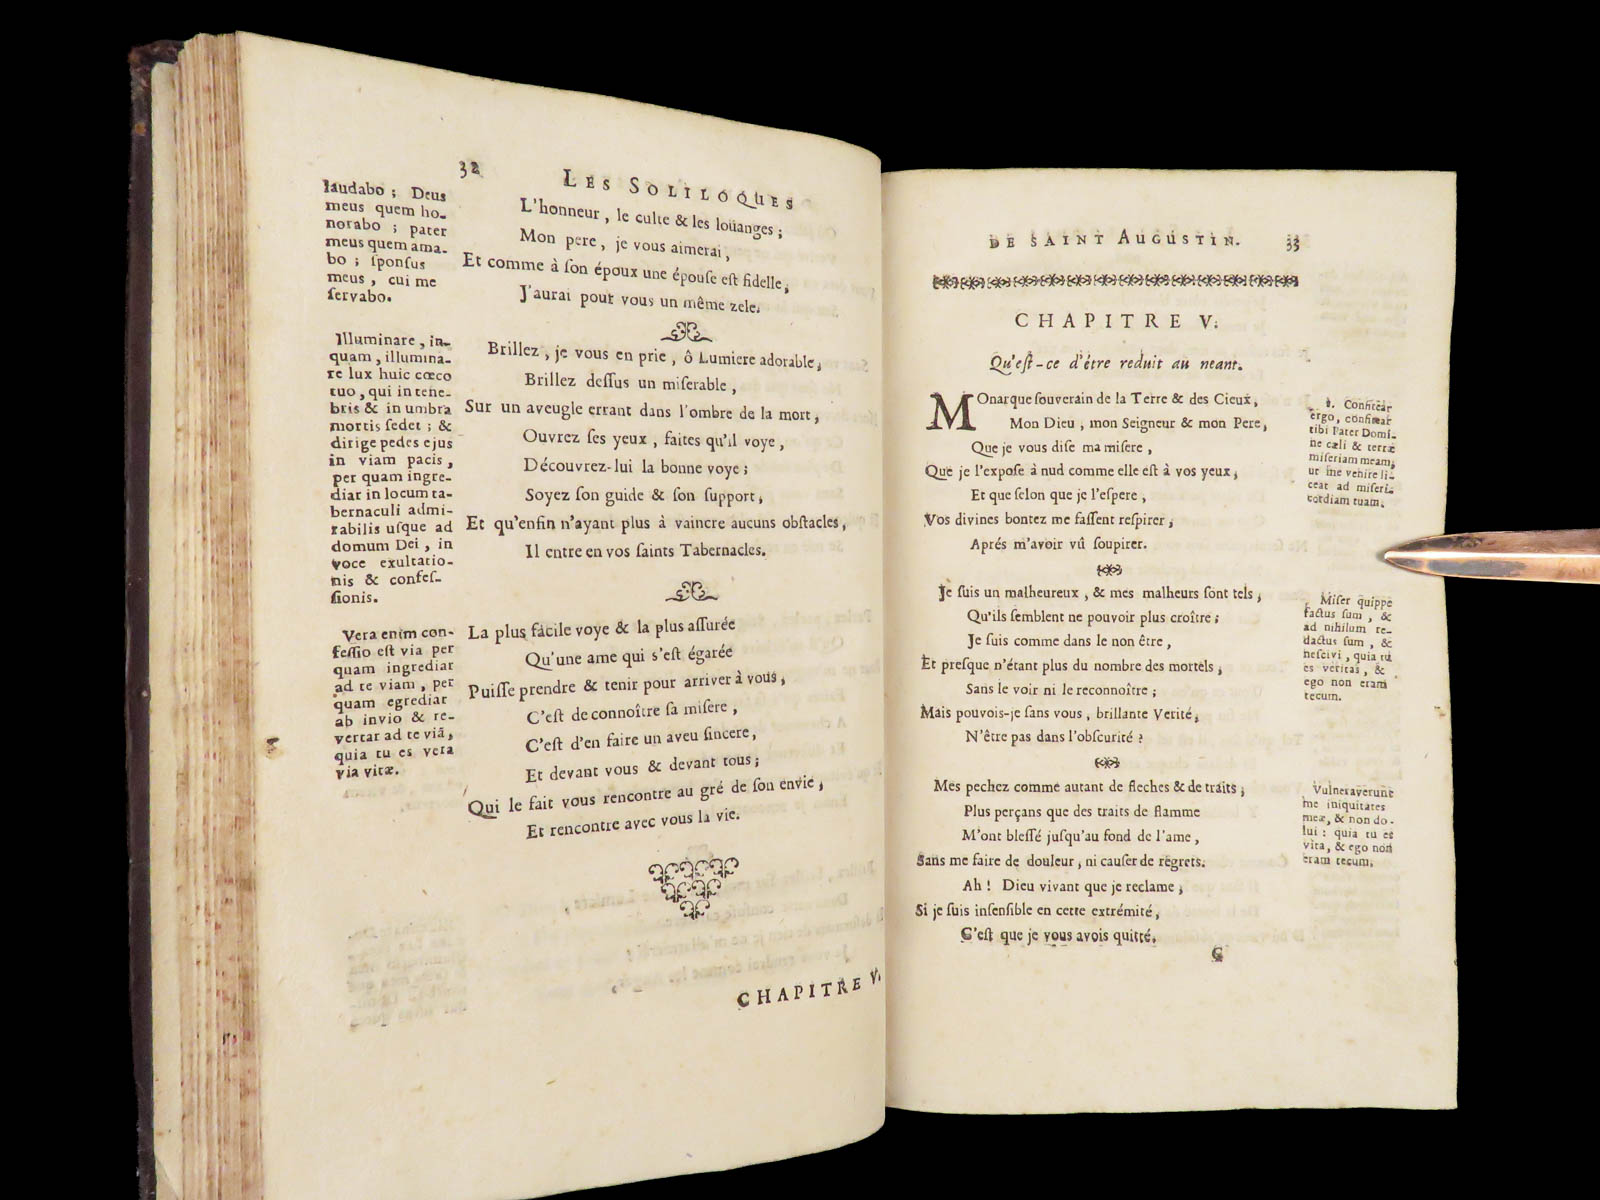 32
LES SOLILOQUES
laudabo ; Deus
meus quem ho-
norabo ; pater
meus quem ama-
bo ; ſponſus
meus , cui me
ſervabo.
L'honneur , le culte & les loüanges ;
Mon pere , je vous aimerai ,
Et comme à ſon époux une épouſe eſt fidelle ,
J'aurai pour vous un même zele.
Illuminare , in-
quam , illumina-
re lux huic cœco
tuo , qui in tene-
bris & in umbra
mortis ſedet ; &
dirige pedes ejus
in viam pacis ,
per quam ingre-
diar in locum ta-
bernaculi admi-
rabilis uſque ad
domum Dei , in
voce exultatio-
nis & confeſ-
ſionis.
Brillez , je vous en prie , ô Lumiere adorable ,
Brillez deſſus un miſerable ,
Sur un aveugle errant dans l'ombre de la mort ,
Ouvrez ſes yeux , faites qu'il voye ,
Découvrez-lui la bonne voye ;
Soyez ſon guide & ſon ſupport ,
Et qu'enfin n'ayant plus à vaincre aucuns obſtacles ,
Il entre en vos ſaints Tabernacles.
Vera enim con-
feſſio eſt via per
quam ingrediar
ad te viam , per
quam egrediar
ab invio & re-
vertar ad te viã ,
quia tu es vera
via vitæ.
La plus fàcile voye & la plus aſſurée
Qu'une ame qui s'eſt égarée
Puiſſe prendre & tenir pour arriver à vous ,
C'eſt de connoître ſa miſere ,
C'eſt d'en faire un aveu ſincere ,
Et devant vous & devant tous ;
Qui le fait vous rencontre au gré de ſon envie ,
Et rencontre avec vous la vie.
CHAPITRE V.
DE SAINT AUGUSTIN.
33
CHAPITRE V.
Qu'eſt-ce d'être reduit au neant.
MOnarque ſouverain de la Terre & des Cieux ,
Mon Dieu , mon Seigneur & mon Pere ,
Que je vous diſe ma miſere ,
Que je l'expoſe à nud comme elle eſt à vos yeux ,
Et que ſelon que je l'eſpere ,
Vos divines bontez me faſſent reſpirer ,
Aprés m'avoir vû ſoupirer.
1. Confitear
ergo, confitear
tibi Pater Domi-
ne cæli & terræ
miſeriam meam,
ut me venire li-
ceat ad miſeri-
cordiam tuam.
Je ſuis un malheureux , & mes malheurs ſont tels ,
Qu'ils ſemblent ne pouvoir plus croître ;
Je ſuis comme dans le non être ,
Et preſque n'étant plus du nombre des mortels ,
Sans le voir ni le reconnoître ;
Mais pouvois-je ſans vous , brillante Verité ,
N'être pas dans l'obſcurité ?
Miſer quippe
factus ſum , &
ad nihilum re-
dactus ſum , &
neſcivi , quia tu
es veritas , &
ego non eram
tecum.
Mes pechez comme autant de fleches & de traits ,
Plus perçans que des traits de flamme
M'ont bleſſé juſqu'au fond de l'ame ,
Sans me faire de douleur , ni cauſer de regrets.
Ah ! Dieu vivant que je reclame ,
Si je ſuis inſenſible en cette extrémité ,
C'eſt que je vous avois quitté.
Vulneraverunt
me iniquitates
meæ, & non do-
lui : quia tu es
vita, & ego non
eram tecum.
C